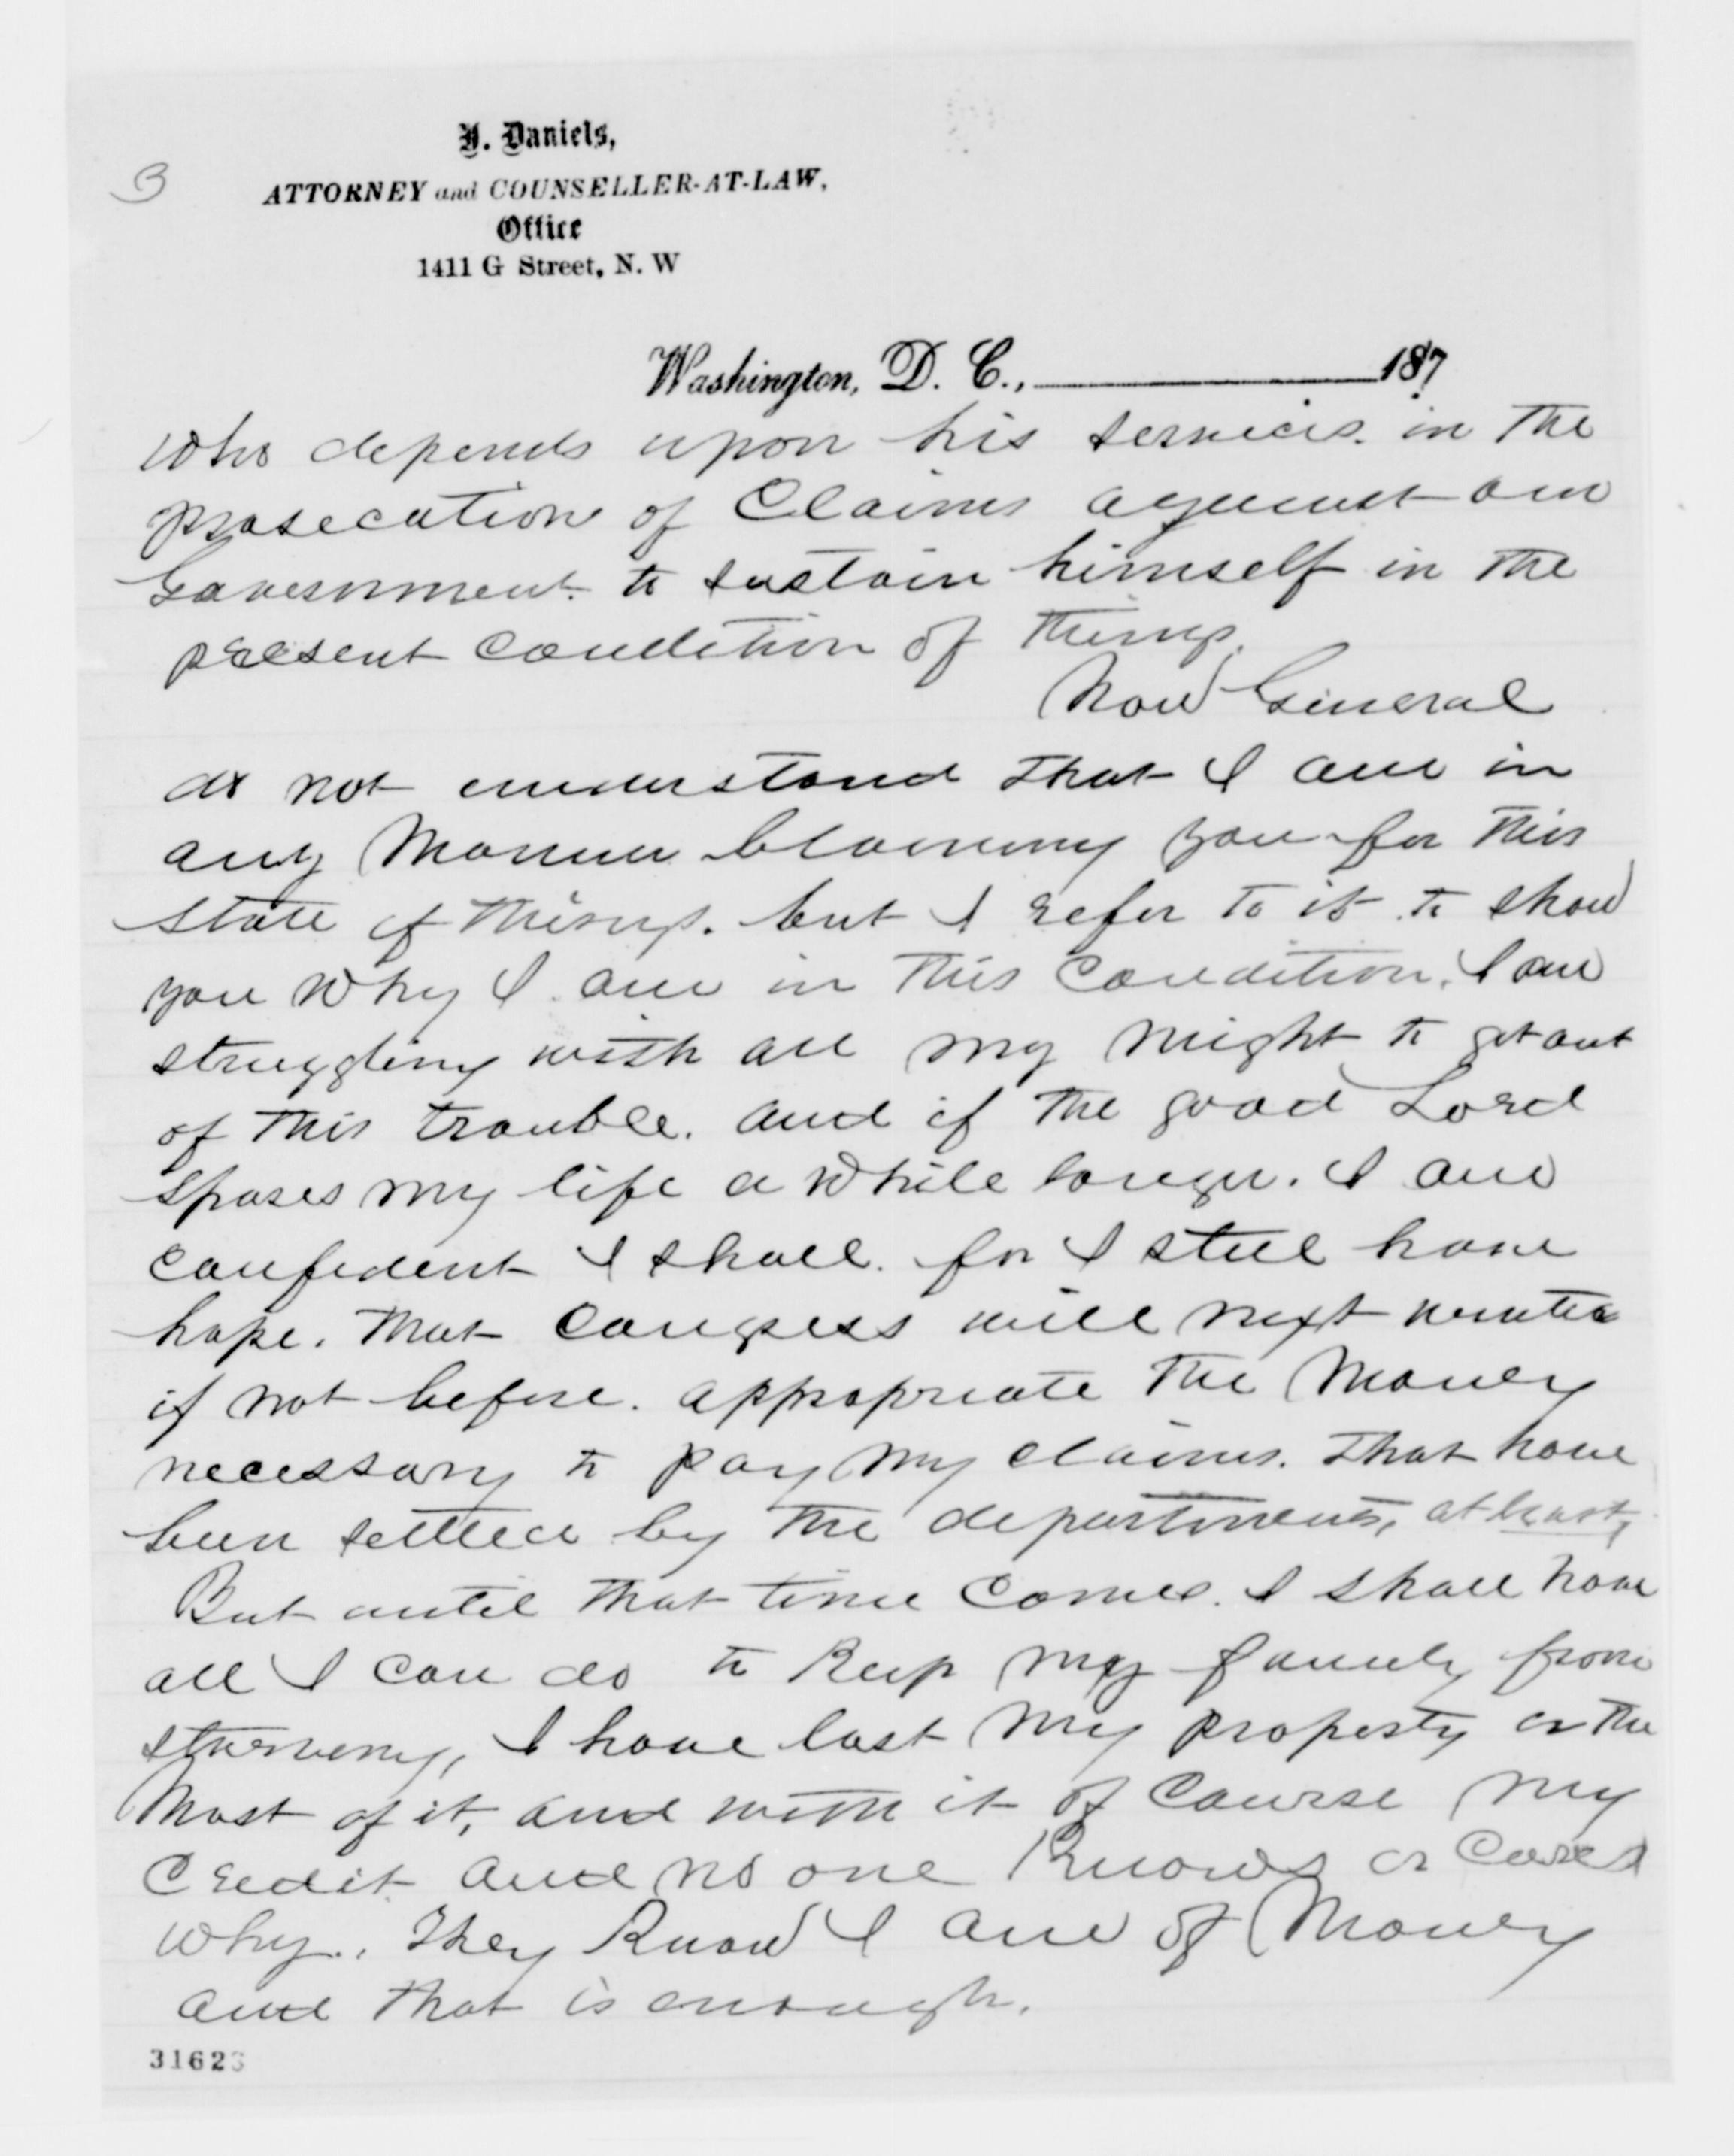 3
Daniels,
ATTORNEY and COUNSELLER-AT-LAW,
Office
1411 G Street, N. W
Washington, D. C., 187
who depends upon his services. in the
prosecution of Claims against our
Government. to sustain himself in the
present condition of things.
Now General
do not understand that I am in
any Manner blaming you for this
state of things. but I refer to it. to show
you why I am in this condition. I am
struggling with all my might to get out
of this trouble. and if the good Lord
spares my life a while longer. I am
confident I shall. for I still have
hope. that Congress will next winter
if not before. appropriate the Money
necessary to pay my claims. that have
been settled by the departments, at least,
But until that time comes. I shall have
all I can do to Keep my family from
starveing, I have lost my property or the
Most of it, and with it of course my
Credit and no one Knows or Cares
why., They Know I am of Money
and that is enough.
3162